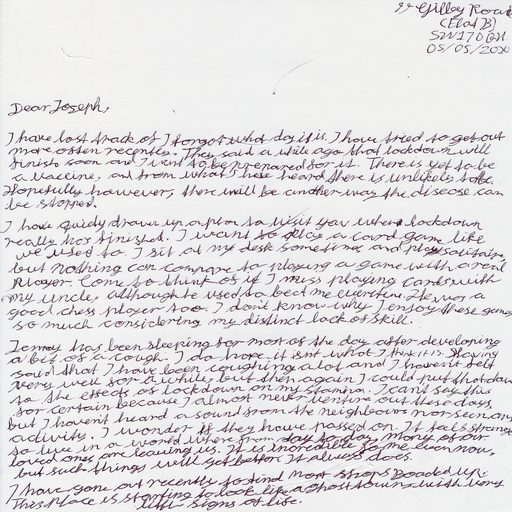 Gilbey Road
(Flat B)
SW17 0QH
05/05/2020
Dear Joseph,
I have lost track of I forgot what day it is. I have tried to get out
more often recently. They said a while ago that lockdown will
finish soon and I want to be prepared for it. There is yet to be
a vaccine, and from what I have heard there is unlikely to be.
Hopefully however, there will be another way the disease can
be stopped.
I have quickly drawn up a plan to visit you when lockdown
really has finished. I want to play a card game like
we used to. I sit at my desk sometimes and play solitaire,
but nothing can compare to playing a game with a real
player. Come to think of it I miss playing cards with
my uncle, although he used to beat me everytime. He was a
good chess player too. I don't know why I enjoy these games
so much considering my distinct lack of skill.
Jenny has been sleeping for most of the day after developing
a bit of a cough. I do hope it isn't what I think it is. Having
said that I have been coughing a lot and I haven't felt
very well for a while, but then again I could put that down
to the effects of lockdown on my stamina. I can't say this
for certain because I almost never venture out these days,
but I haven't heard a sound from the neighbours nor seen any
activity. I wonder if they have passed on. It feels strange
to live in a world where from day to day, many of our
loved ones are leaving us. It is incredible to me even now,
but such things will get better. It always does.
I have gone out recently to find most shops boarded up.
This place is starting to look like a ghost town with very
little signs of life.